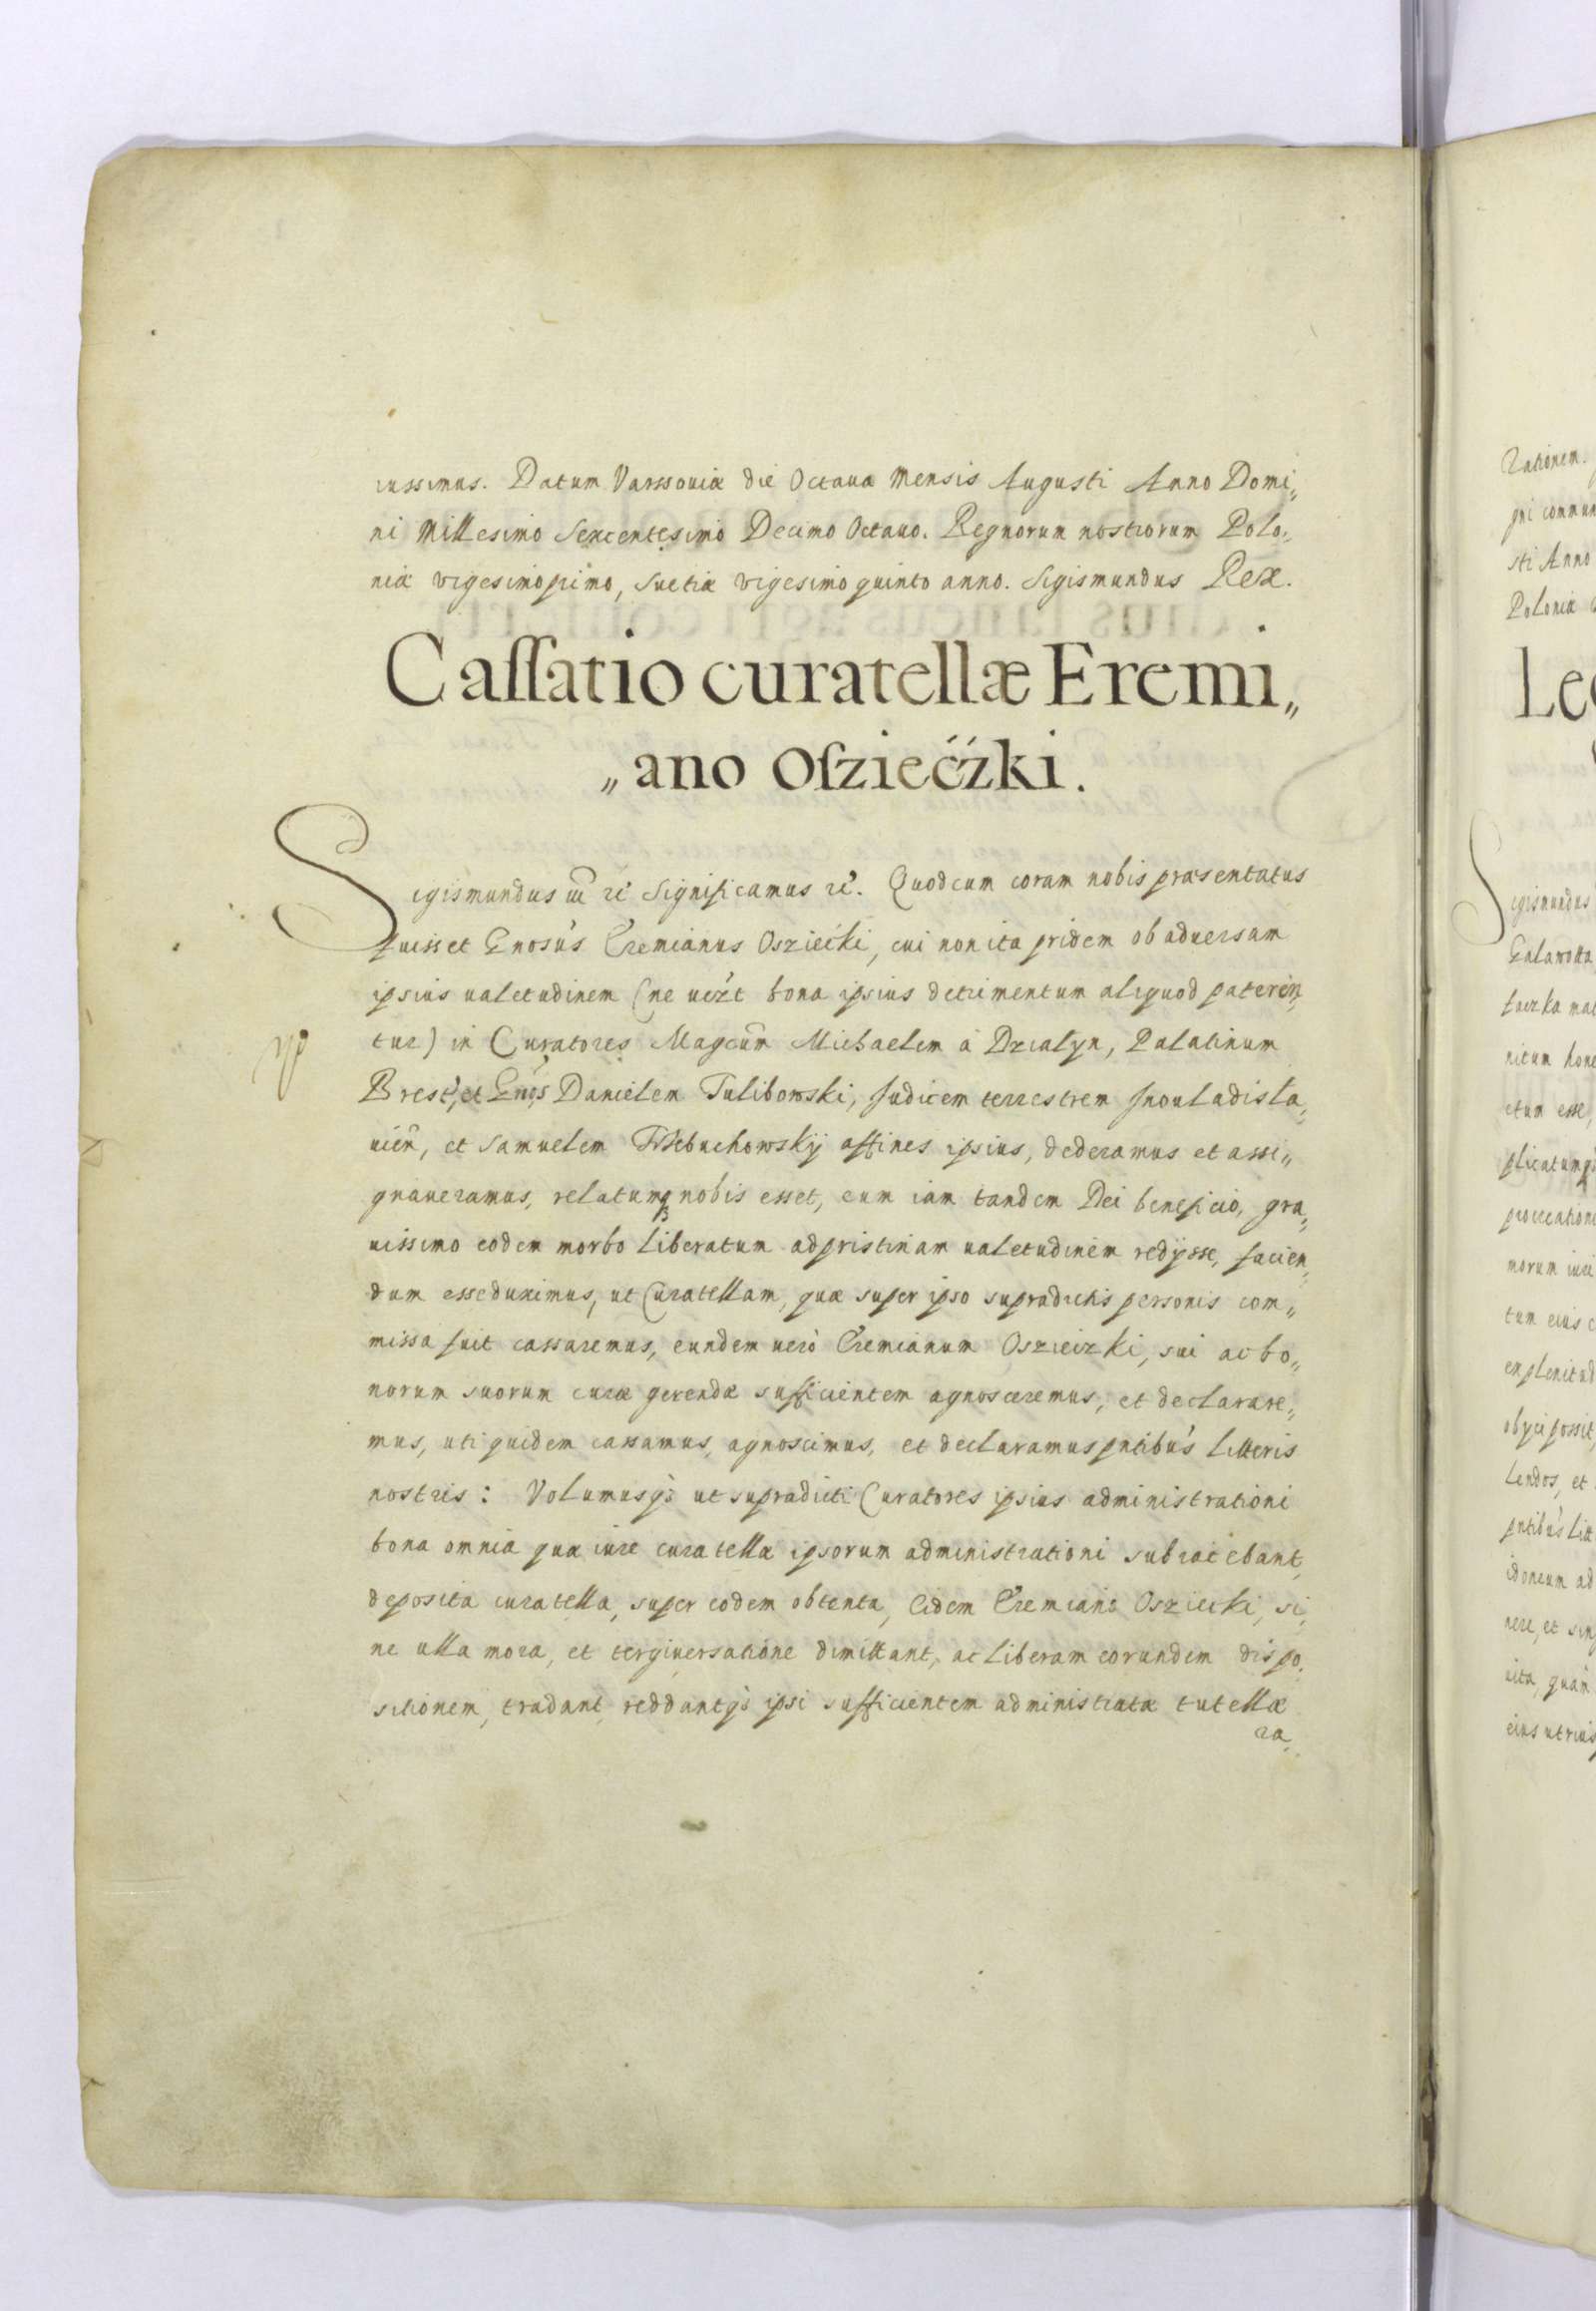 iussimus. Datum Varssouiæ die Octaua Mensis Augusti Anno Domi„
ni Millesimo Sexcentesimo Decimo Octauo. Regnorum nostrorum Polo„
niæ vigesimoprimo, Suetiæ vigesimo quinto anno. Sigismundus Rex.
Caſſatio curatellæ Eremi„
„ano Oſziećźki.
Sigismundus Significamus. Quod cum coram nobis præsentatus
fuisset Gnosus Eremianus Osziećki, cui non ita pridem ob aduersam
ipsius ualetudinem (ne bona ipsius detrimentum aliquod pateren„
tur) in Curatores Magcum Michaelem à Dzialyn, Palatinum
Brest, et Gnos Danielem Tulibowski, Judicem terrestrem Jnouladisla„
uien, et Samuelem affines ipsius, dederamus et assi„
gnaueramus, relatumq nobis esset, eum iam tandem Dei beneficio, gra„
uissimo eodem morbo liberatum ad pristinam ualetudinem redijsse, facien„
dum esse duximus, ut Curatellam, quæ super ipso supradictis personis com„
missa fuit cassaremus, eundem uerò Eremianum Oszieczki, sui ac bo„
norum suorum curæ gerendæ sufficientem agnosceremus, et declarare„
mus, uti quidem cassamus, agnoscimus, et declaramus pntibus litteris
nostris: Volumusq; ut supradicti Curatores ipsius administrationi
bona omnia quæ iure curatellæ ipsorum administrationi subiacebant,
deposita curatella, super eodem obtenta, Eidem Eremiano Osziecki, si„
ne ulla mora, et tergiuersatione dimittant, ac liberam eorundem dispo„
sitionem, tradant, reddantq; ipsi sufficientem administratæ tutellæ
ra„
rationem.
gni commun
sti Anno
Poloniæ
Lec
Sigismundus
nitum hone
etum esse,
plicatumq;
morum iuri
tum eius c
en plenitud
obijci possit,
lendos, et
pntibus litt
idoneum ad
nere, et sin
uita, quàm
eius utrius